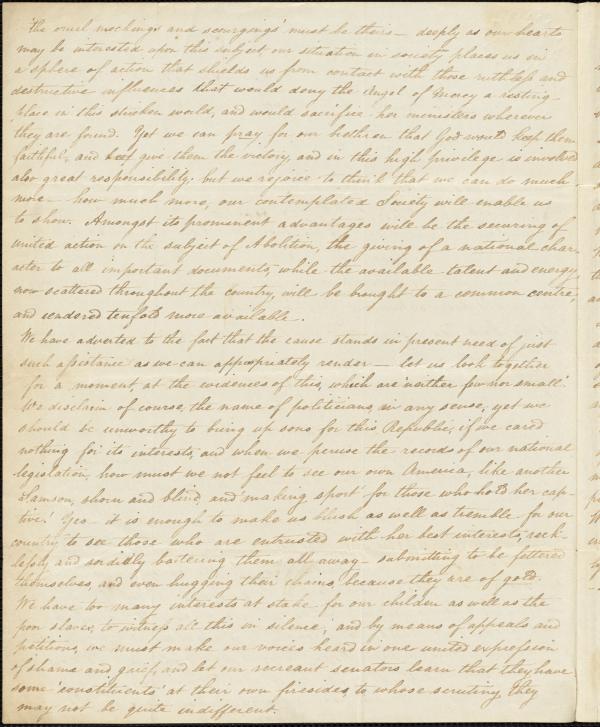 'the cruel mockings and scourgings' must be theirs — deeply as our hearts
may be interested upon this subject our situation in society places us in
a sphere of action that shields us from contact with those ruthless and
destructive influences that would deny the Angel of Mercy a resting-
place in this stricken world, and would sacrifice her ministers wherever
they are found. Yet we can pray for our brethren that God would keep them
faithful, and give them the victory, and in this high privilege is involved
also great responsibility, but we rejoice to think that we can do much
more — how much more, our contemplated Society will enable us
to show. Amongst its prominent advantages will be the securing of
united action on the subject of Abolition, the giving of a national char-
acter to all important documents, while the available talent and energy,
now scattered throughout the country, will be brought to a common centre,
and rendered tenfold more available.
We have adverted to the fact that the cause stands in present need of just
such assistance as we can appropriately render — let us look together
for a moment, at the evidences of this, which are neither few nor small.
We disclaim of course, the name of politicians, in any sense, yet we
should be unworthy to bring up sons for this Republic, if we cared
nothing for its interests, and when we peruse the records of our national
legislation, how must we not feel to see our own America, like another
Samson, shorn and blind, and 'making sport' for those who hold her cap-
tive! Yes — it is enough to make us blush as well as tremble for our
country to see those who are entrusted with her best interests, reck-
lessly and sordidly bartering them all away — submitting to be fettered
themselves, and even hugging their chains, because they are of gold.
We have too many interests at stake for our children as well as the
poor slaves, to witness all this in silence, and by means of appeals and
petitions, we must make our voices heard in one united expression
of shame and grief, and let our recreant senators learn that they have
some 'constituents' at their own firesides, to whose scrutiny they
may not be quite indifferent.